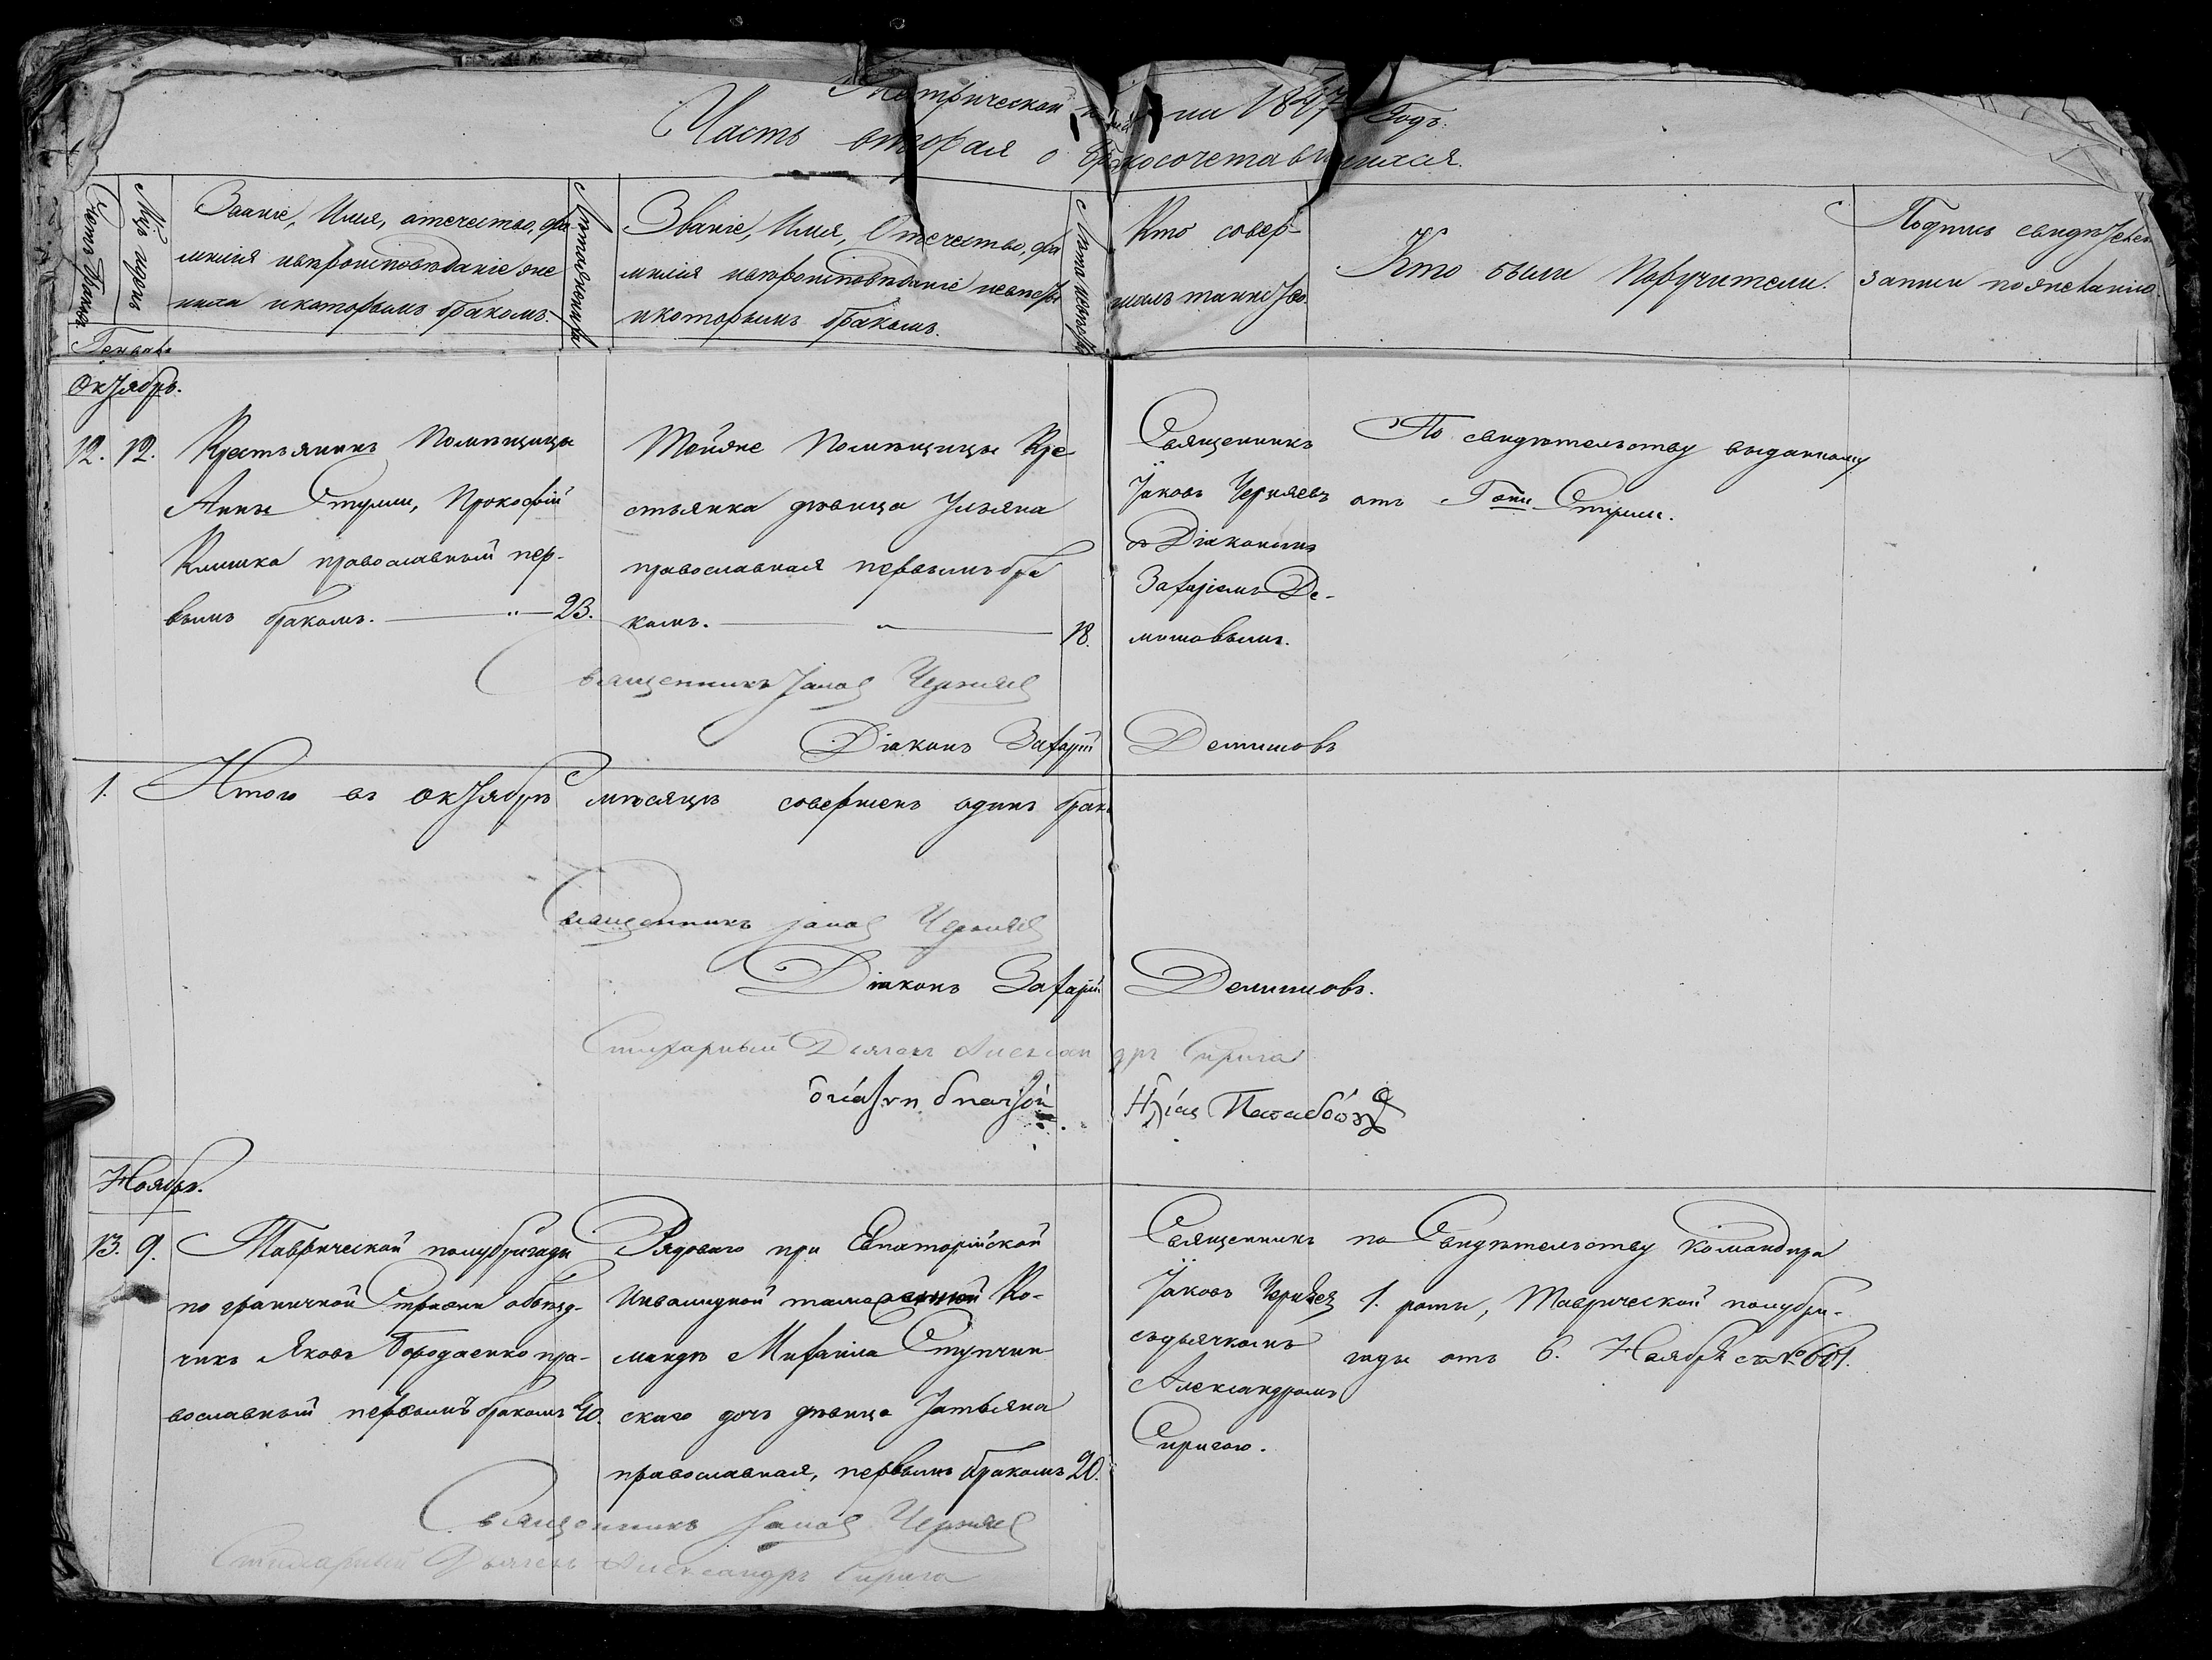 Метрической на 1847 Годъ.
Часть вторая о бракосочетавшихся.
Счетъ браковъ
Мѣсяцъ и день
Званіе, Имя, отечество, фа
милія и вѣроисповѣданіе же
ниха и которымъ бракомъ.
Лѣта жениха
Званіе, Имя, Отечество, фа
милія и вѣроисповѣданіе невѣсты
и которымъ бракомъ.
Лѣта невѣсты
Кто совер-
шалъ таинство
Кто были Поручители.
Подпись свидѣтелей
записи по желанію.
Генварь
Октябрь.
12. 12. Крестьянинъ Помѣщицы
Анны Прокофій
Климка православный пер-
вымъ бракомъ. — " — 23.
Тойже Помѣщицы Кре-
стьянка дѣвица Ульяна
православная первымъ бра
комъ. — " — 18.
Священникъ
Іаковъ Черняевъ
съ Діакономъ
Захаріемъ Де-
мишовымъ.
По свидѣтельству выданному
отъ Гжи
Священникъ Іаковъ Черняев
Діаконъ Захарій Демишовъ
1. Итого въ октябрѣ мѣсяцѣ совершенъ одинъ бракъ
Священникъ Іаковъ Черняев
Діаконъ Захарій Демишовъ.
Стихарный Дьячекъ Александръ Сирига
Ἠλίας
Ноябрь.
13. 9. Таврической полубригады
пограничной Стражи объѣзд-
чикъ Яковъ Бородаенко пра-
вославный первымъ бракомъ 40.
Рядоваго при Евпаторійской
Инвалидной Ко-
мандѣ Михаила Ступчин
скаго дочь дѣвица Татьяна
православная, первымъ бракомъ 20.
Священникъ
Іаковъ Черняев
съ дьячкомъ
Александромъ
Сиригою.
по Свидѣтельству Командира
1. роты, Таврической полубри-
гады отъ 6. Ноября за № 601.
Священникъ Іаковъ Черняев
Стихарный Дьячекъ Александръ Сирига